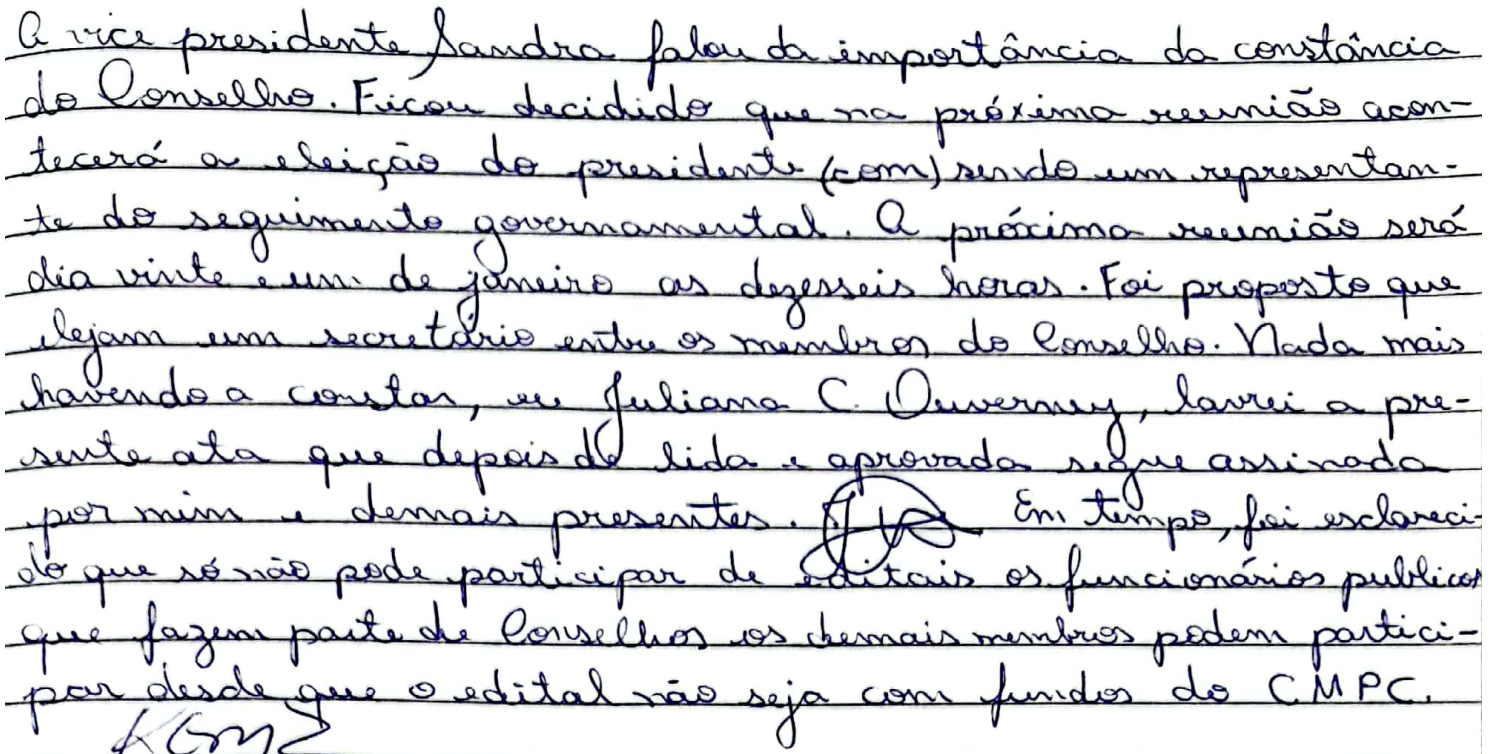 A vice presidente Sandra falou da importância da constância
do Conselho. Ficou decidido que na próxima reunião acon-
tecerá a eleição do presidente (com) sendo um representan-
te do seguimento governamental. A próxima reunião será
dia vinte e um de janeiro as dezesseis horas. Foi proposto que
elejam um secretário entre os membros do Conselho. Nada mais
havendo a constar, eu Juliana C. Ouverney, lavrei a pre-
sente ata que depois de lida e aprovada segue assinada
por mim e demais presentes. Em tempo, foi esclareci-
do que só não pode participar de editais os funcionários publicos
que fazem parte de Conselhos os demais membros podem partici-
par desde que o edital não seja com fundos do CMPC.